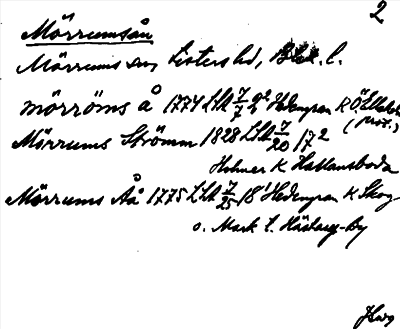 2
Mörrumsån
Mörrums sn, Listers hd, Blek. l.
mörröms å 1774 LSA 7/7 9² Hedengran K
(Mot.)
Mörrums Strömm 1828 LSA 7/20 17²
Holmer K Hallansboda
Mörrums Åå 1775 LSA 7/25 18¹ Hedengran K Skog
o. Mark t. Häsaug-By